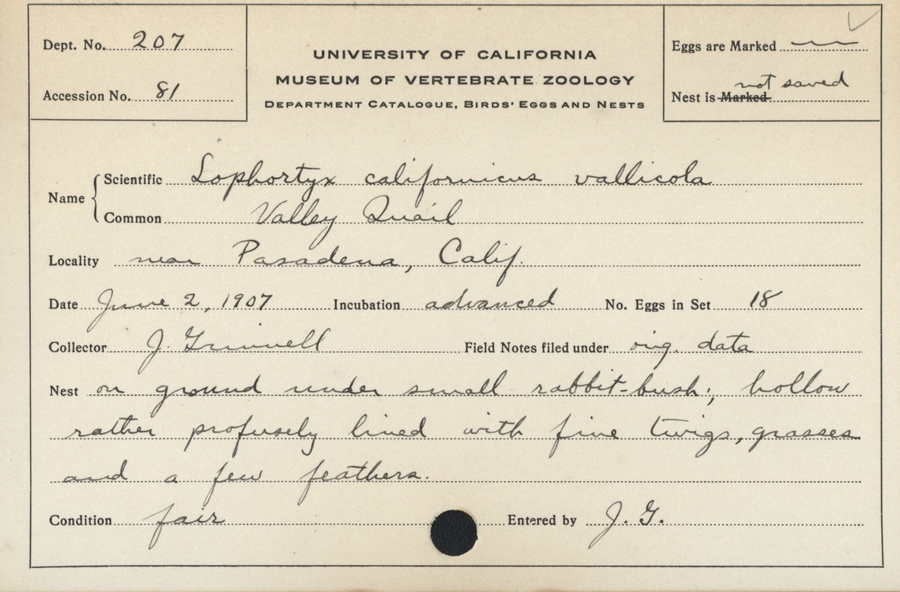 Dept. No. 207
Accession No. 81
UNIVERSITY OF CALIFORNIA
MUSEUM OF VERTEBRATE ZOOLOGY
DEPARTMENT CATALOGUE, BIRDS' EGGS AND NESTS
Eggs are Marked
not saved
Nest is Marked
Name
Scientific Lophortyx californicus vallicola
Common Valley Quail
Locality near Pasadena, Calif.
Date June 2, 1907 Incubation advanced No. Eggs in Set 18
Collector J. Grinnell Field Notes filed under orig. data
Nest on ground under small rabbit-bush; hollow
rather profusely lined with fine twigs, grasses
and a few feathers.
Condition fair Entered by J. G.